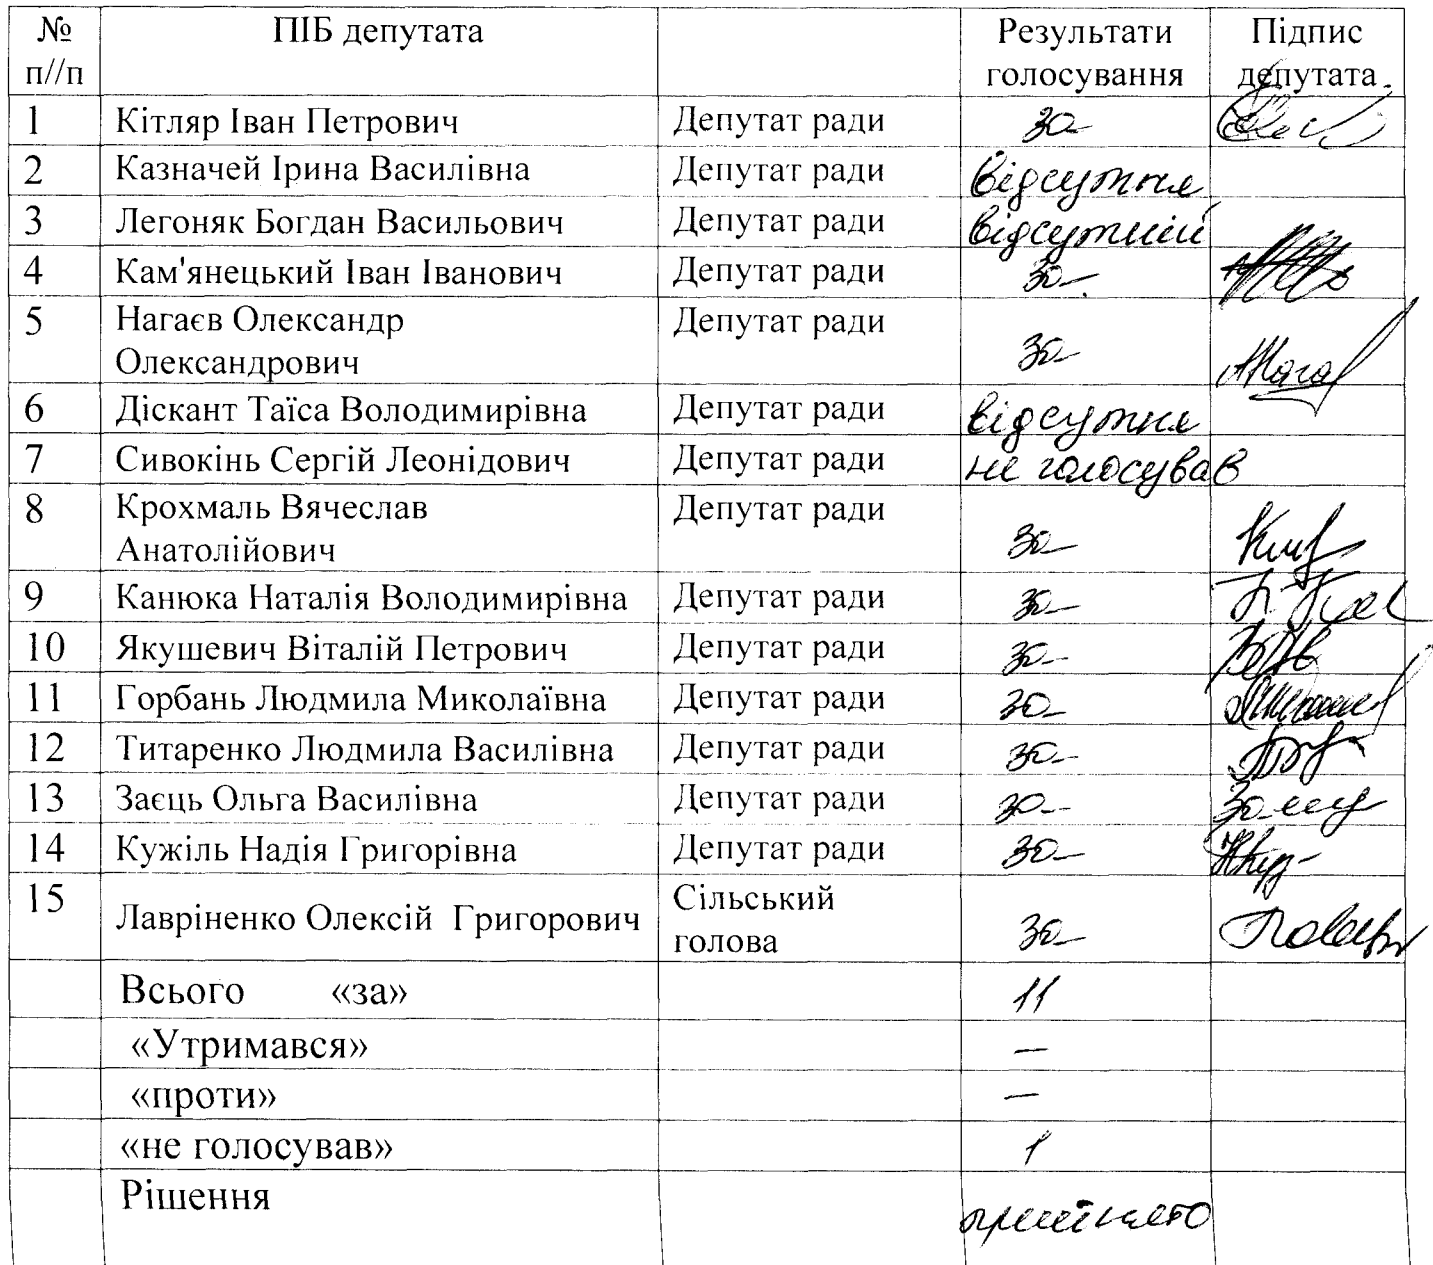 № ПІБ депутата Результати Підпис
п//п голосування депутата
1 Кітляр Іван Петрович Депутат ради за
2 Казначей Ірина Василівна Депутат ради відсутня
3 Легоняк Богдан Васильович Депутат ради відсутній
4 Кам'янецький Іван Іванович Депутат ради за
5 Нагаєв Олександр Депутат ради
Олександрович за
6 Діскант Таїса Володимирівна Депутат ради відсутня
7 Сивокінь Сергій Леонідович Депутат ради не голосував
8 Крохмаль Вячеслав Депутат ради
Анатолійович за
9 Канюка Наталія Володимирівна Депутат ради за
10 Якушевич Віталій Петрович Депутат ради за
11 Горбань Людмила Миколаївна Депутат ради за
12 Титаренко Людмила Василівна Депутат ради за
13 Заєць Ольга Василівна Депутат ради за
14 Кужіль Надія Григорівна Депутат ради за
15 Лавріненко Олексій Григорович Сільський
голова за
Всього «за» 11
«Утримався» —
«проти» —
«не голосував» 1
Рішення прийнято